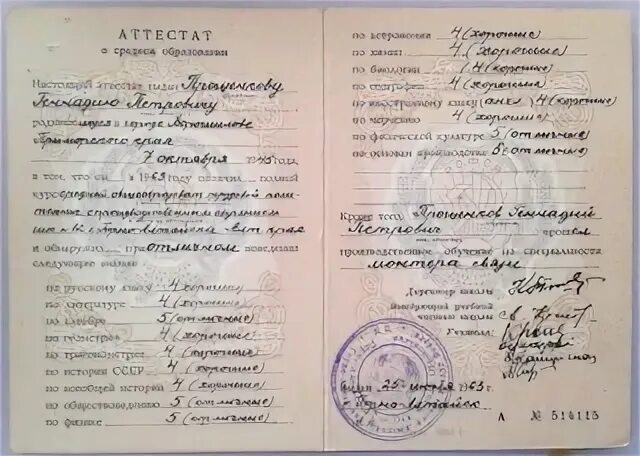 АТТЕСТАТ
о среднем образовании
Настоящий аттестат выдан Прошенкову
Геннадию Петровичу
родившемуся в городе
Приморского края
7 октября 1945 года
в том, что он в 1963 году окончил полный
курс средней общеобразоват. трудовой поли-
с производственным обучением
и обнаружил при отличном поведении
следующие знания
по русскому языку 4 (хорошо)
по литературе 4 (хорошо)
по алгебре 5 (отлично)
по геометрии 4 (хорошо)
по тригонометрии 4 (хорошо)
по истории СССР 4 (хорошо)
по всеобщей истории 4 (хорошо)
по обществоведению 5 (отлично)
по физике 5 (отлично)
по астрономии 4 (хорошо)
по химии 4 (хорошо)
по биологии 4 (хорошо)
по географии 4 (хорошо)
по иностранному языку (англ) 4 (хорошо)
по черчению 4 (хорошо)
по физической культуре 5 (отлично)
по основам производства 5 (отлично)
Кроме того, Прошенков Геннадий
Петрович прошел
производственное обучение по специальности
монтера связи
Директор школы
Заведующий учебной
частью школы
Учителя:
25 июня 1963 г.
Горно-Алтайск
А № 514115